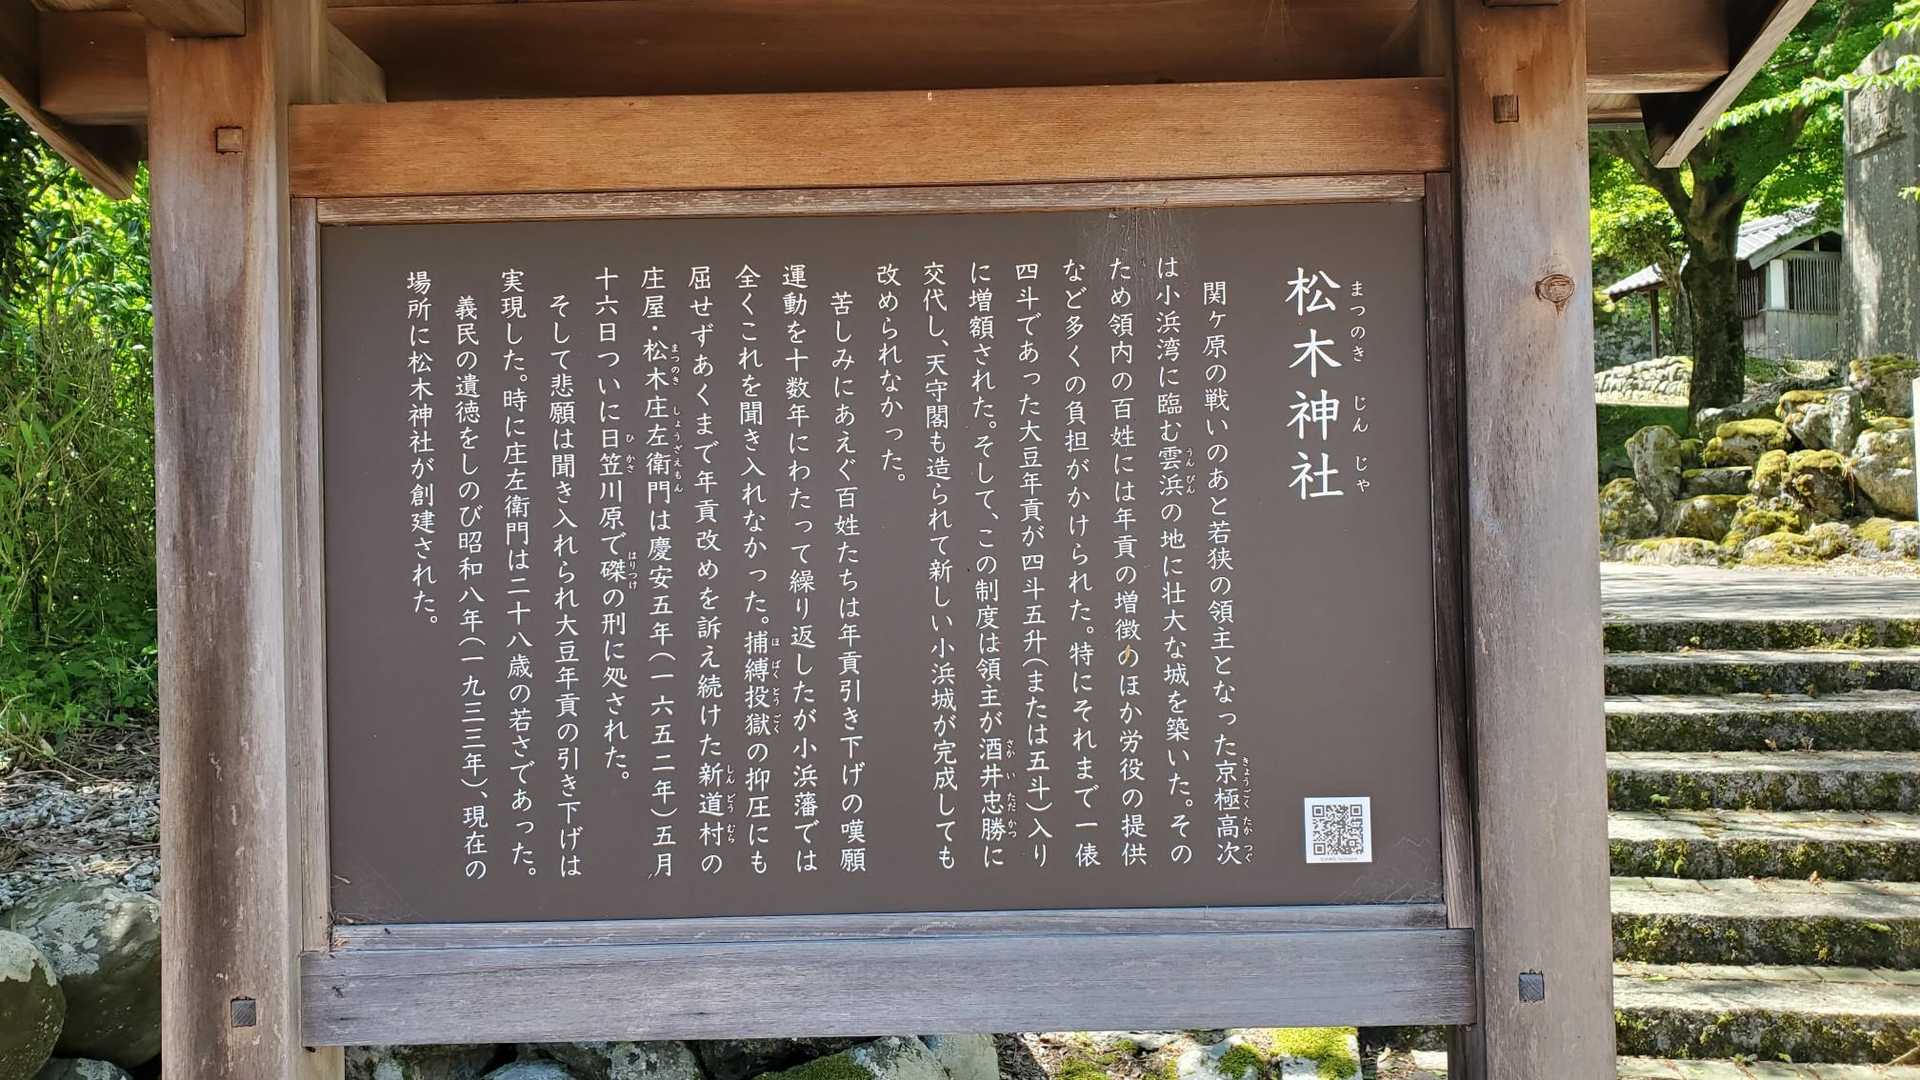 松木神社
まつのき じん じゃ
関ヶ原の戦いのあと若狭の領主となった京極高次
きょうごく たか つぐ
は小浜湾に臨む雲浜の地に壮大な城を築いた。その
うんぴん
ため領内の百姓には年貢の増徴のほか労役の提供
など多くの負担がかけられた。特にそれまで一俵
四斗であった大豆年貢が四斗五升(または五斗)入り
に増額された。そして、この制度は領主が酒井忠勝に
さか い ただ かつ
交代し、天守閣も造られて新しい小浜城が完成しても
改められなかった。
苦しみにあえぐ百姓たちは年貢引き下げの嘆願
運動を十数年にわたって繰り返したが小浜藩では
全くこれを聞き入れなかった。捕縛投獄の抑圧にも
ほ ばく とう ごく
屈せずあくまで年貢改めを訴え続けた新道村の
しん どう むら
庄屋・松木庄左衛門は慶安五年(一六五二年)五月
まつのき しょうざえもん
十六日ついに日笠川原で磔の刑に処された。
ひ かさ はりつけ
そして悲願は聞き入れられ大豆年貢の引き下げは
実現した。時に庄左衛門は二十八歳の若さであった。
義民の遺徳をしのび昭和八年(一九三三年)、現在の
場所に松木神社が創建された。